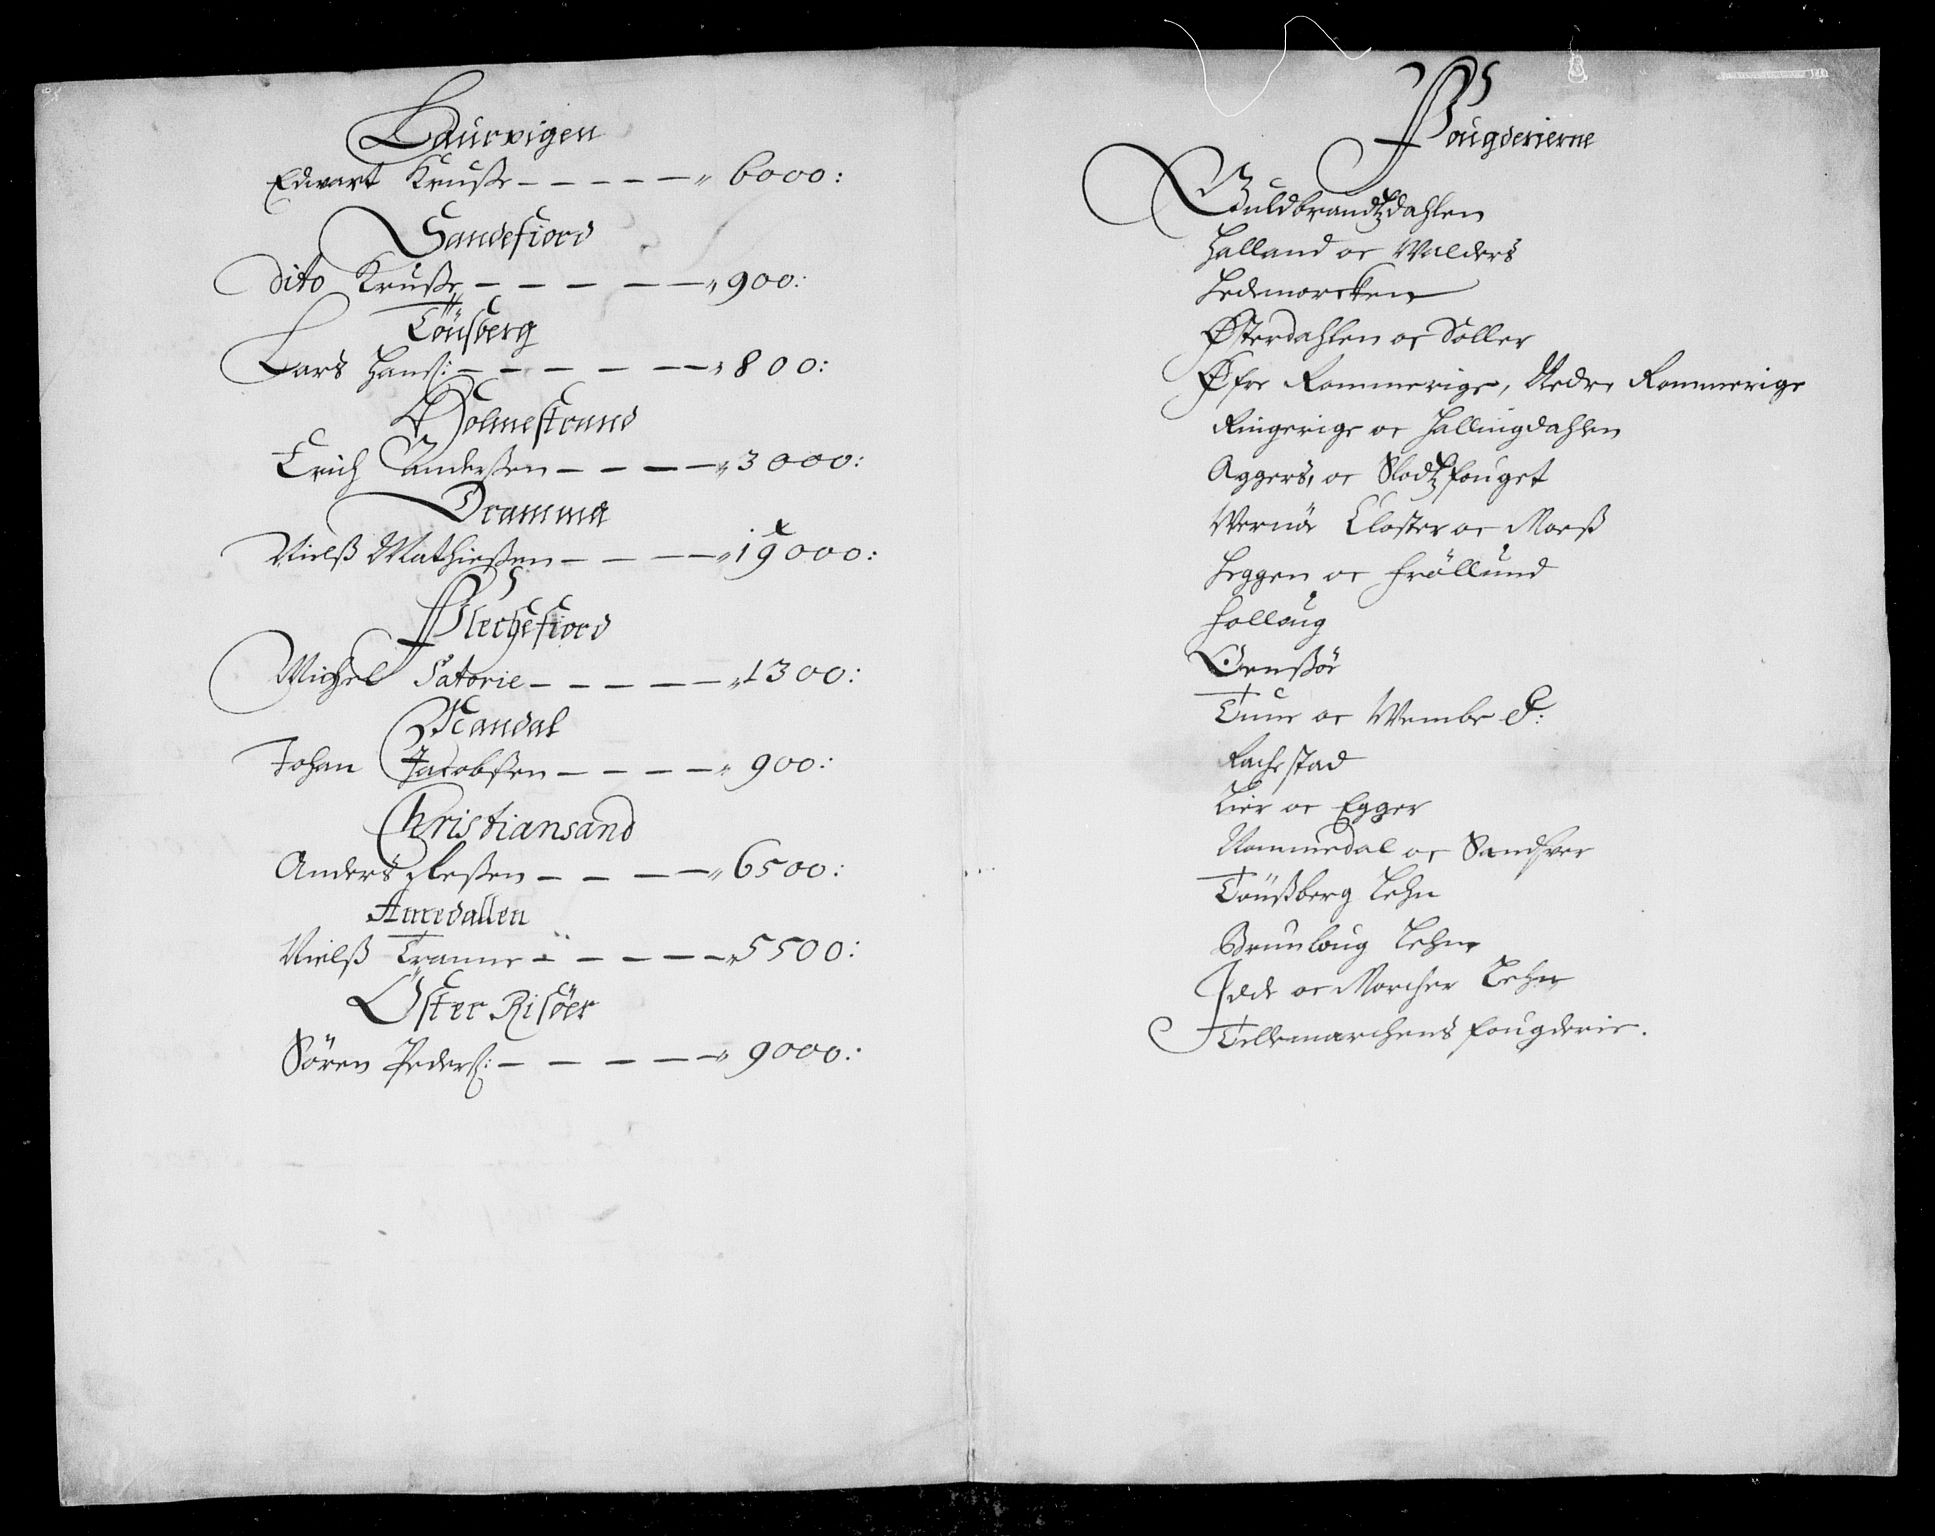 Laurvigen
Edvart Kruße – – – – – 6000:
Sandefiord
Dito Kruße – – – – – 900:
Tönsberg
Lars Hanß: – – – – – 800:
Holmestrand
Erich Anderßen – – – – 3000:
Dramma
Nielß Mathießen – – – – 19000:
Flechefiord
Michel Satorie – – – – – 1300:
Mandal
Johan Jacobßen – – – – – 900:
Christiansand
Anders Ileßen – – – – 6500:
Arredallen
Nielß Tranne – – – – – 5500:
Öster Risöer
Sören Pederß: – – – – – 9000:
Fougderierne
Guldbrandtzdahlen
Halland oc Walders
Hedemarcken
Østerdahlen oc Soller
Øfre Rommerige, Nedre Rommerige
Ringerige oc Hallingdahlen
Aggers, oc Slodtzfouget
Wernöe Closter oc Moeß
Heggen oc Fröllund
Folloug
Ornßöe
Tune oc Wembe S:
Rachestad
Lier oc Egger
Nommedal oc Sandsver
Tönßberg Lehn
Brunloug Lehn
Idde oc Marcher Lehn
Tellemarchens fougderie.